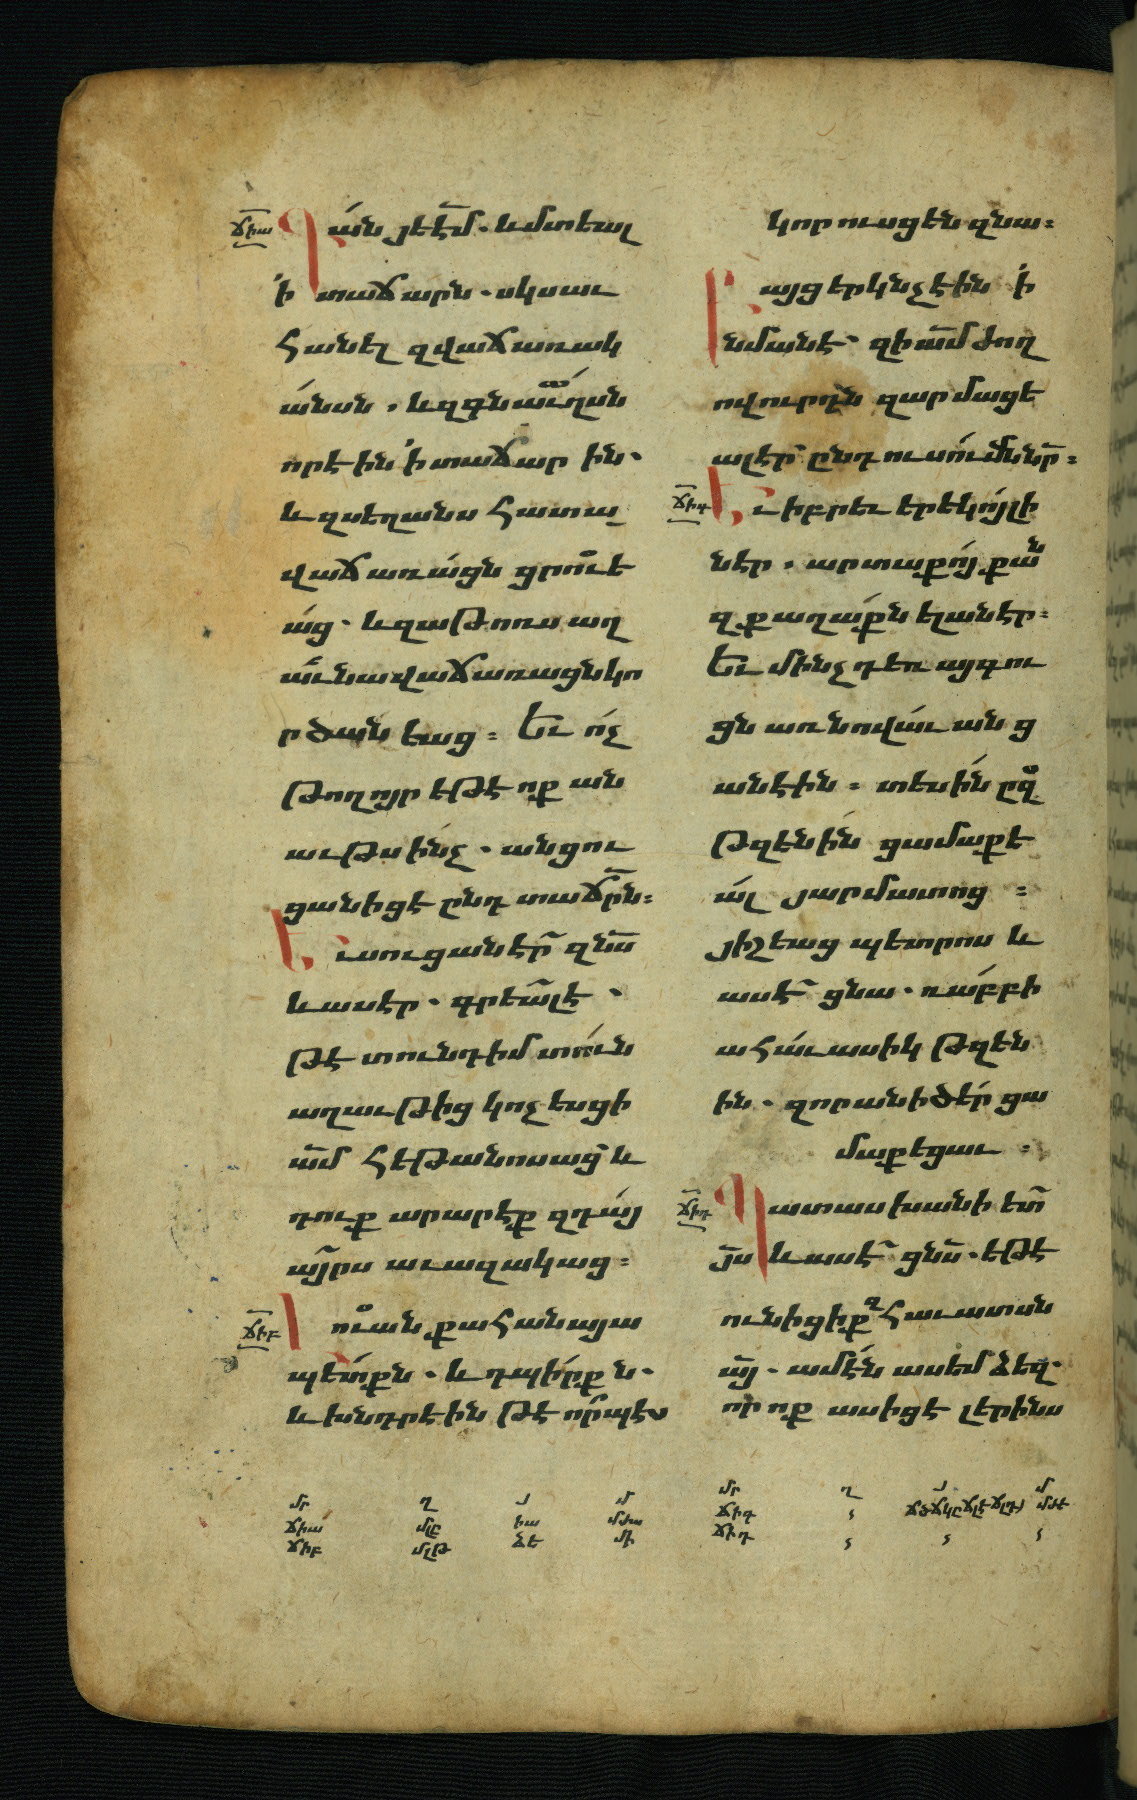 ճիա
Գան յեէ՟մ. և մտեալ
ի տաճարն. սկսաւ
հանել զվաճառակ
անսն. և զգնաւղսն
որ էին ի տաճարին.
և զսեղանս հատա
վաճառացն ցրուե
աց. և զաթոռս աղ
աւնավաճառացն կո
րծանեաց: Եւ ոչ
թողոյր եթէ ոք ան
աւթս ինչ. անցու
ցանիցէ ընդ տաճր՟ն:
Եւ սուցանէր զնս՟
և ասէր. գրեալ է.
թէ տունդ իմ տուն
աղաւթից կոչեսցի
ամ՟ հեթանոսաց և
դուք արարէք զդայ
այրս աւազակաց:
ճիբ
Լուան քահանայա
պետքն. և դպիրքն.
և խնդրէին թէ որպէս
կորուսցեն զնա:
Բայց երկնչէին ի
նմանէ. զի ամ՟ ժող
ովուրդն զարմացե
ալ էր ընդ ուսումնն նր՟:
ճիգ
Եւ իբրեւ երեկոյ լի
նէր. արտաքոյ քան
զքաղաքն ելանէր:
Եւ մինչդեռ այգու
ցն առնովաւ անց
անէին: տեսին ըզ
թզենին ցամաքե
ալ յարմատոց:
յիշեաց պետրոս և
ասէ ցնա. ռաբբի
ահաւասիկ թզեն
ին. զոր անիծեր ցա
մաքեցաւ:
ճիդ
Պատասխանի ետ
յս՟ և ասէ ցնս՟. եթէ
ունիցիք զհաւատսն
այ՟. ամէն ասեմ ձեզ.
որ ոք ասիցէ լերինս
մր ղ յ մ
ճիա մլը իա մխա
ճիբ մլթ ձէ մի
մր ղ յ մ
ճիգ
ճիդ